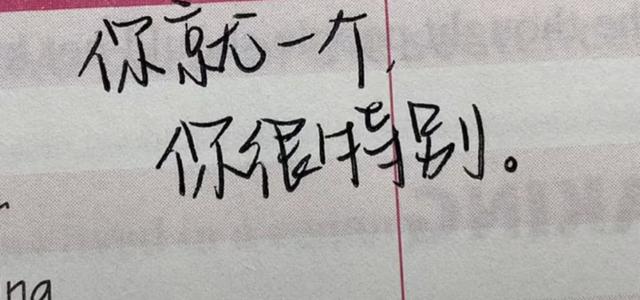 你就一个,
你很特别。
ng